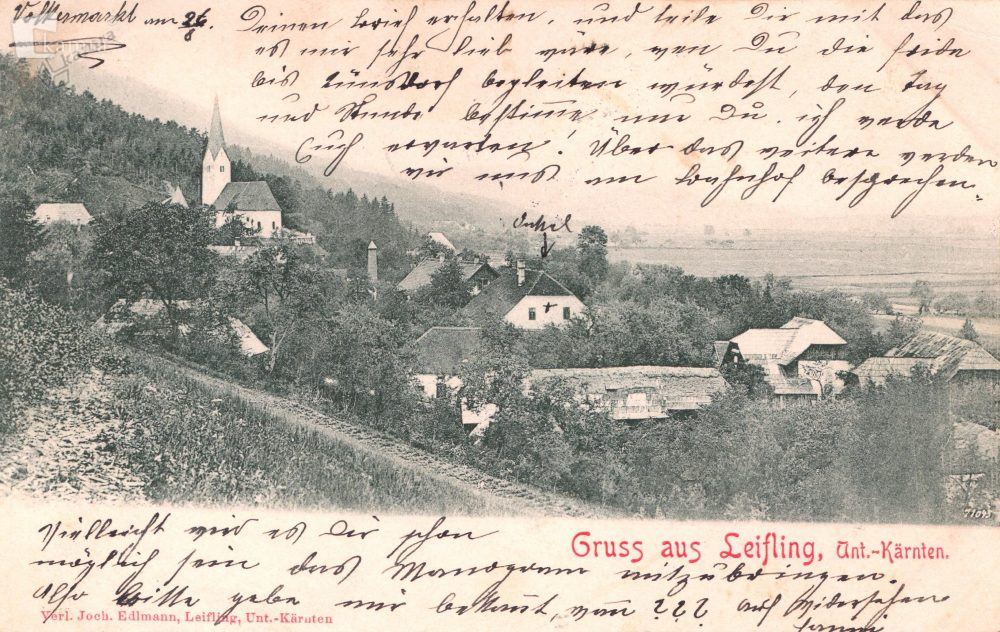 Volkermarkt am 26/8.
Deinen brief erhalten, und teile Dir mit das
es mir sehr lieb wäre, wen Du die fride
bis Künsdorf begleiten würdest, den Tag
und Stunde bestimme nur Du. ich werde
Euch erwarten! Über das weitere werden
wir uns am Bahnhof besprechen.
Onkel
71095
Vielleicht wird es Dir schon
möglich sein das Manogram mitzubringen.
Also bitte gebe mir bekannt, wann ??? auf widersehen
fanni
Gruss aus Leifling, Unt.-Kärnten.
Verl. Joch. Edlmann, Leifling, Unt.-Kärnten